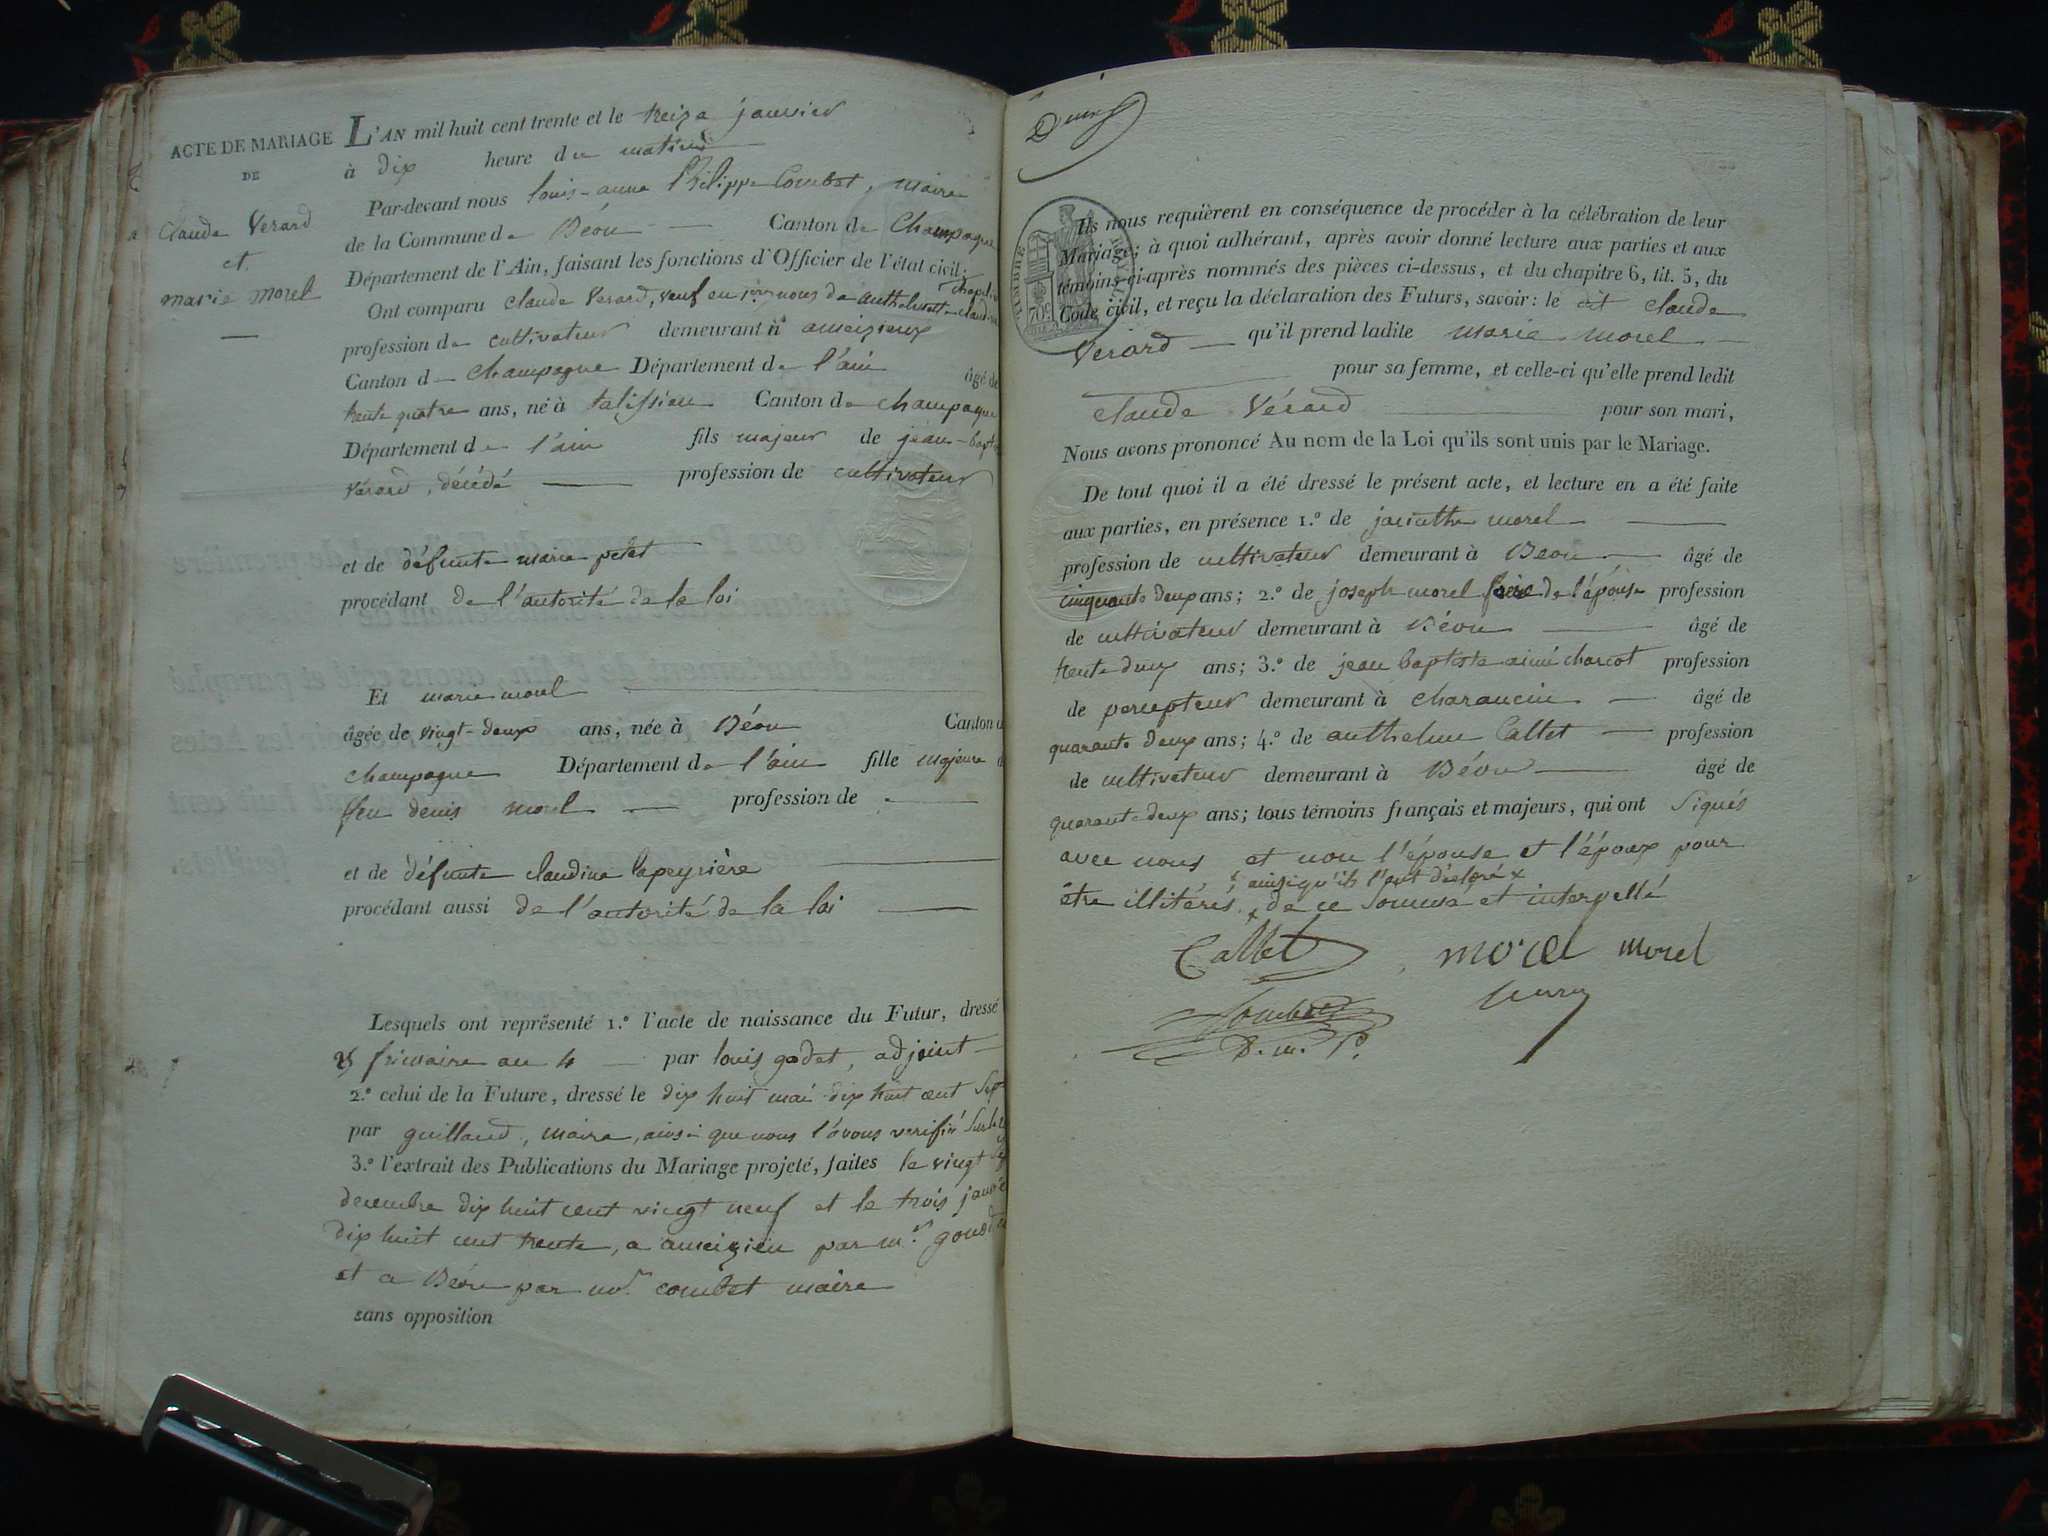 ACTE DE MARIAGE
DE
Claude Verard
et
marie morel
L'AN mil huit cent trente et le treize janvier
à dix heure du matin
Par-devant nous louis-anne Philippe Combet, maire
de la Commune de Béon Canton de Champagne
Département de l'Ain, faisant les fonctions d'Officier de l'état civil;
Ont comparu Claude Verard, veuf en
profession de cultivateur demeurant à ameizieux
Canton d champagne Département de l'ain âgé de
trente quatre ans, né à talissieu Canton de champagne
Département de l'ain fils majeur de jean-bapt
Vérard, décédé profession de cultivateur
et de défunte marie petet
procédant de l'autorité de la loi
Et marie morel
âgée de vingt-deux ans, née à Béon Canton d
champagne Département de l'ain fille majeure d
feu denis morel profession de
et de défunte claudine lapeyrière
procédant aussi de l'autorité de la loi
Lesquels ont représenté 1.º l'acte de naissance du Futur, dressé
frimaire an 4 par louis godet, adjoint
2.º celui de la Future, dressé le dix huit mai dix huit cent sept
par guilland, maire, ainsi que nous l'avons verifié sur le
3.º l'extrait des Publications du Mariage projeté, faites le vingt
decembre dix huit cent vingt neuf et le trois janvie
dix huit cent trente, a ameizieu par mr.
et a Béon par mr. combet maire
sans opposition
TIMBRE ROYAL
70c
Ils nous requièrent en conséquence de procéder à la célébration de leur
Mariage; à quoi adhérant, après avoir donné lecture aux parties et aux
témoins ci-après nommés des pièces ci-dessus, et du chapitre 6, tit. 5, du
Code civil, et reçu la déclaration des Futurs, savoir: le dit claude
Verard qu'il prend ladite marie morel
pour sa femme, et celle-ci qu'elle prend ledit
claude Vérard pour son mari,
Nous avons prononcé Au nom de la Loi qu'ils sont unis par le Mariage.
De tout quoi il a été dressé le présent acte, et lecture en a été faite
aux parties, en présence 1.º de jacinthe morel
profession de cultivateur demeurant à Béon âgé de
cinquante deux ans; 2.º de joseph morel frère de l'épouse profession
de cultivateur demeurant à Béon âgé de
trente deux ans; 3.º de jean baptiste aimé charcot profession
de percepteur demeurant à charancin âgé de
quarante deux ans; 4.º de anthelme Callet profession
de cultivateur demeurant à Béon âgé de
quarante deux ans; tous témoins français et majeurs, qui ont signés
avec nous et non l'épouse et l'époux pour
x ainsi qu'ils l'ont déclaré x
être illitérés, x de ce sommés et interpellé
Callet morel morel
Combet
D. m. P.